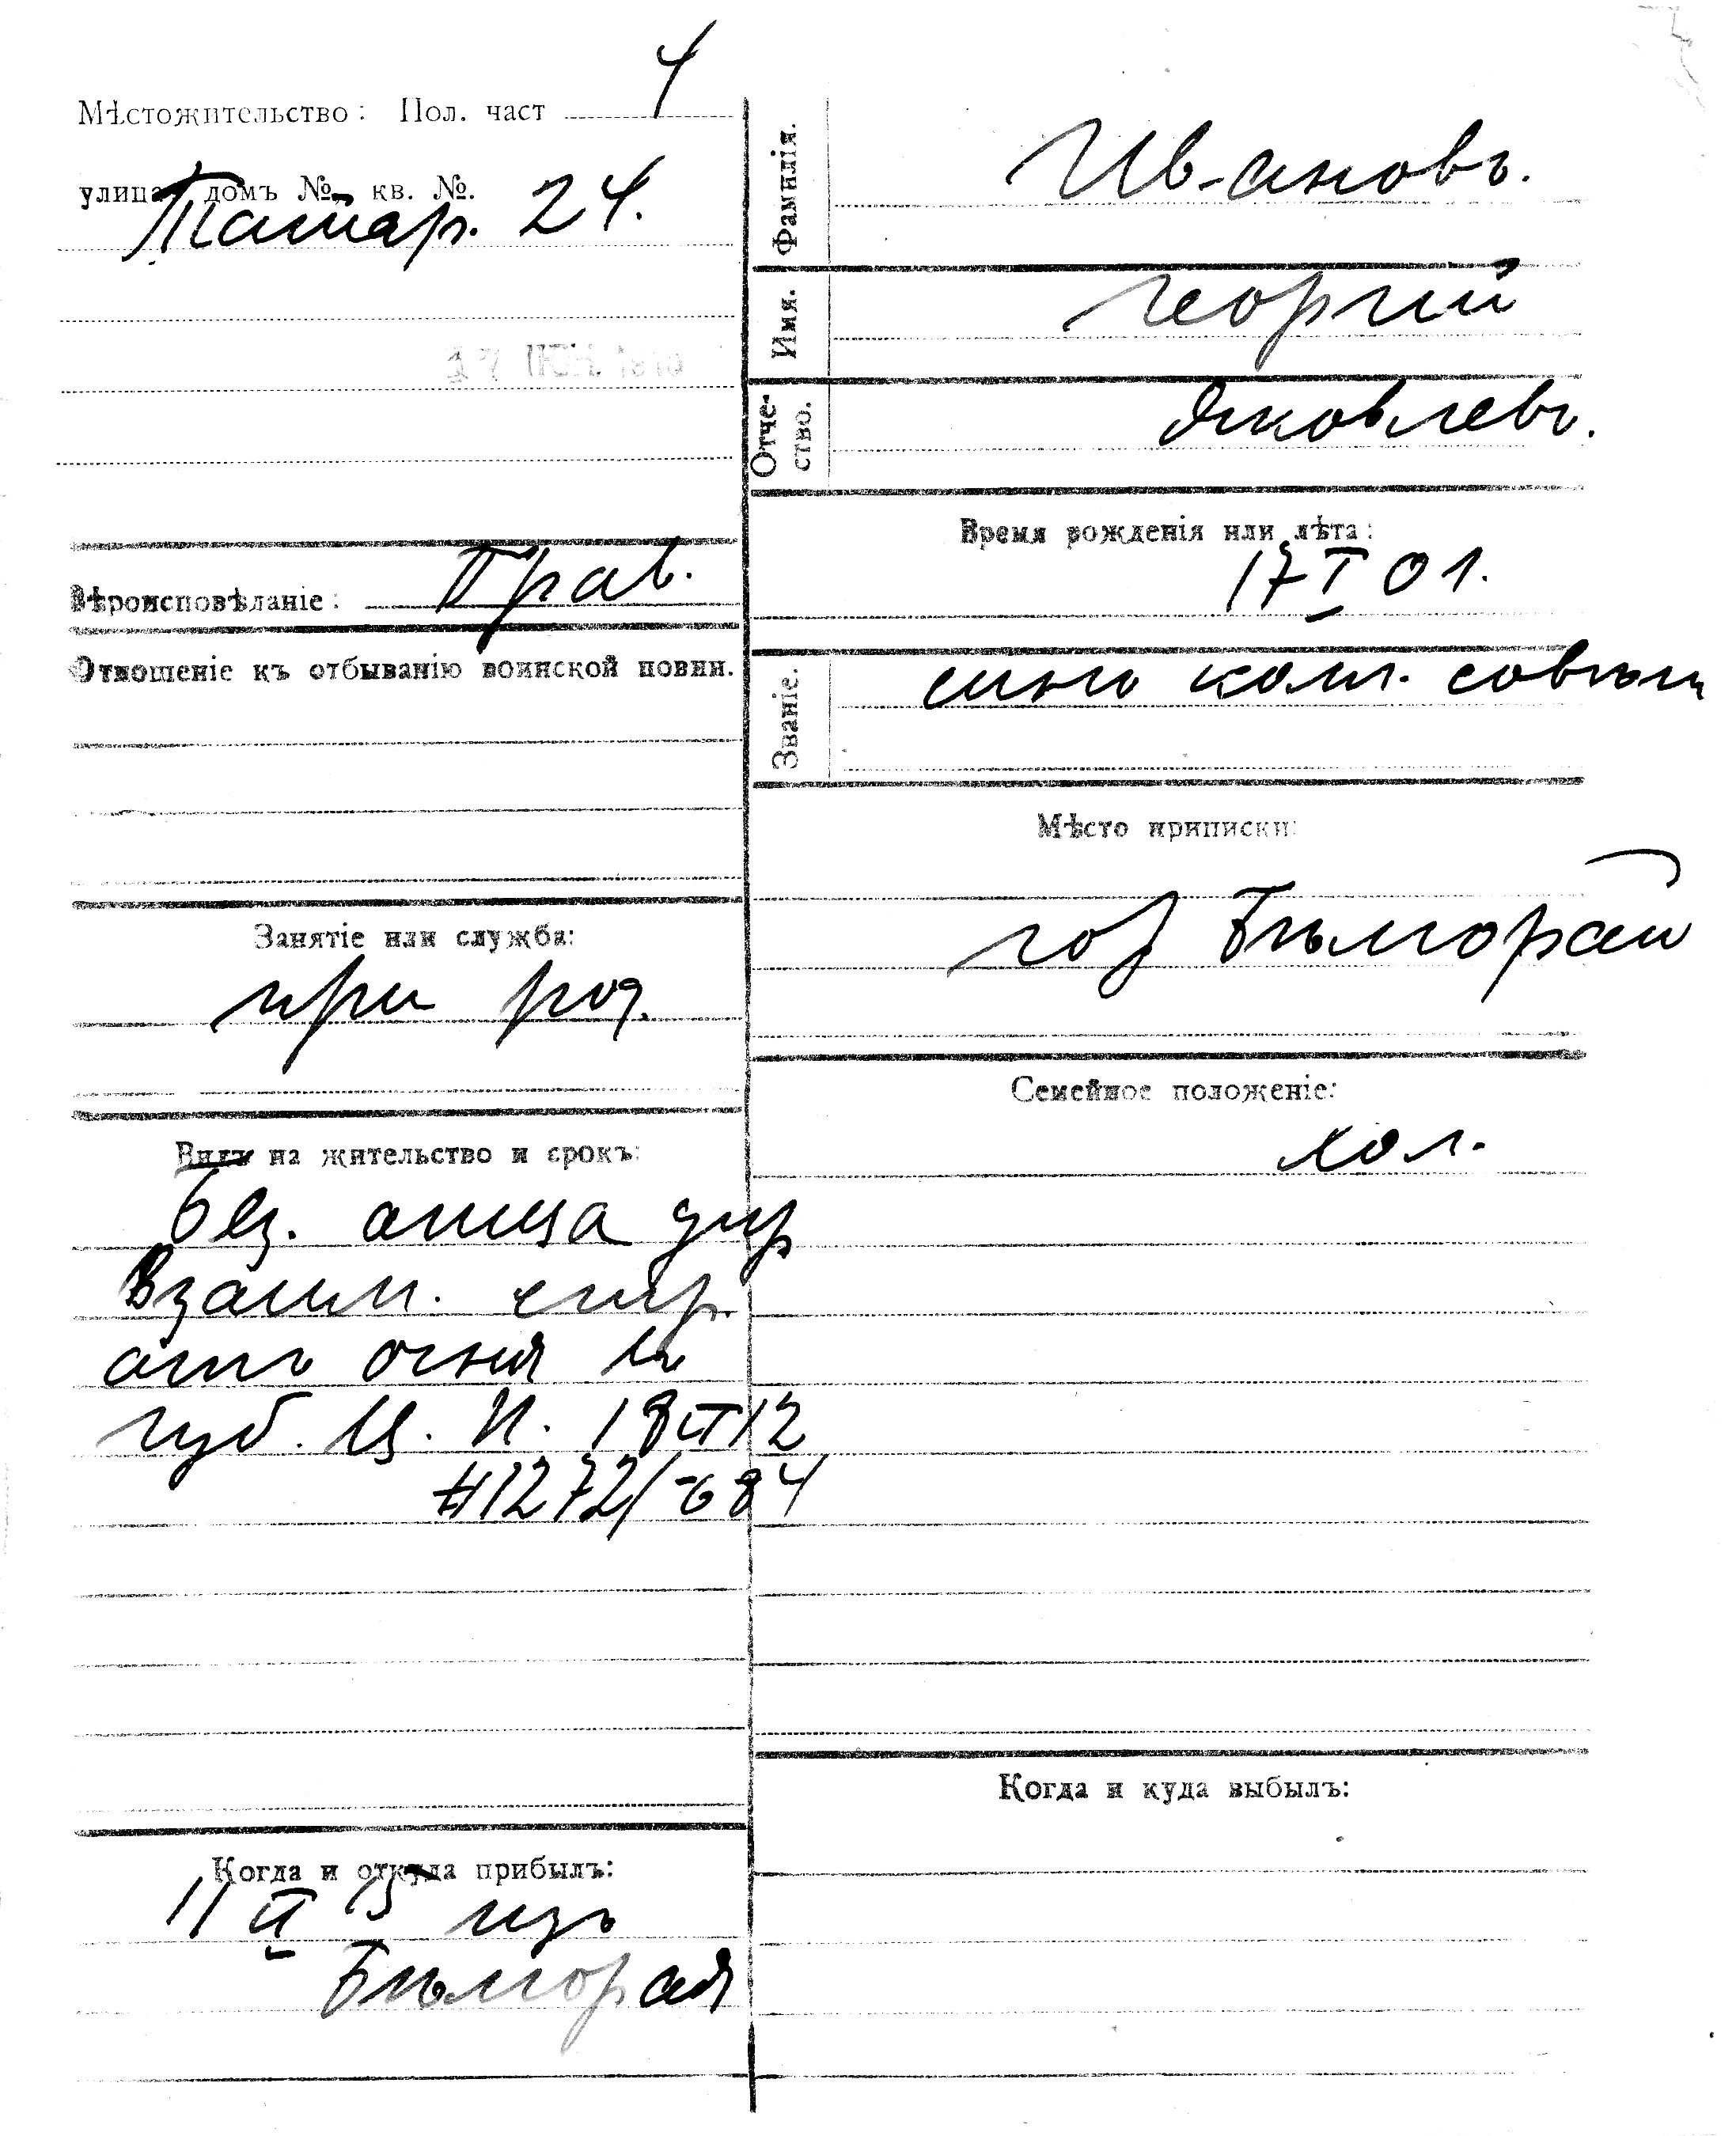 Мѣстожительство: Пол. част 4
улица домъ № кв. №.
Татар. 24.
Вѣроисповѣданіе: Прав.
Отношеніе къ отбыванію воинской повин.
Занятіе или служба:
при род.
Видъ на жительство и срокъ:
отца
Взаим. стр.
отъ огня
губ. Ц. П. 12
11 II 15 изъ
Когда и откуда прибылъ:
Бѣлгорая
Фамилія.
Ивановъ.
Имя.
Георгій
Отче-
ство.
Яковлевъ.
Время рожденія или лѣта:
17 I 01.
Званіе.
сынъ кол. совѣтн
Мѣсто приписки:
гор Бѣлгорай
Семейное положеніе:
хол.
Когда и куда выбылъ: